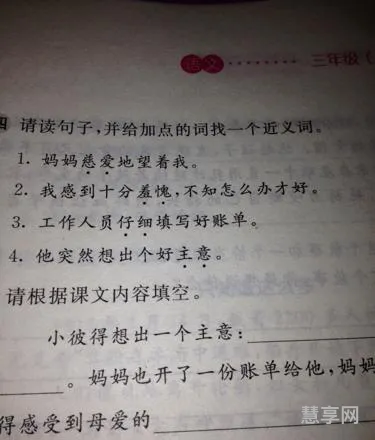 语文 三年级（
四 请读句子，并给加点的词找一个近义词。
1. 妈妈慈爱地望着我。
2. 我感到十分羞愧，不知怎么办才好。
3. 工作人员仔细填写好账单。
4. 他突然想出个好主意。
请根据课文内容填空。
小彼得想出一个主意：
。妈妈也开了一份账单给他，妈妈
得感受到母爱的
慧享网